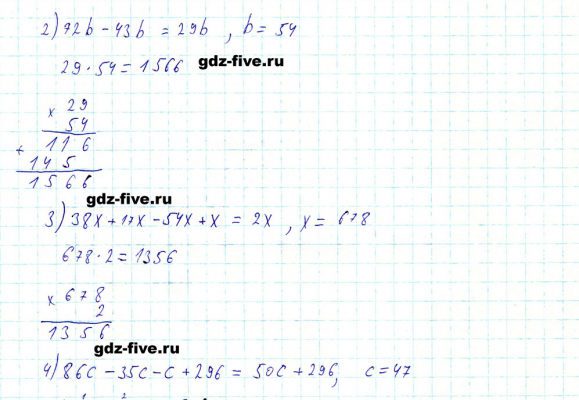 2) 72b - 43b = 29b , b = 54
29 · 54 = 1566
gdz-five.ru
× 29
54
+ 116
145
1566
gdz-five.ru
3) 38x + 17x - 54x + x = 2x , x = 678
678 · 2 = 1356
× 678
2
1356
gdz-five.ru
4) 86c - 35c - c + 296 = 50c + 296, c = 47